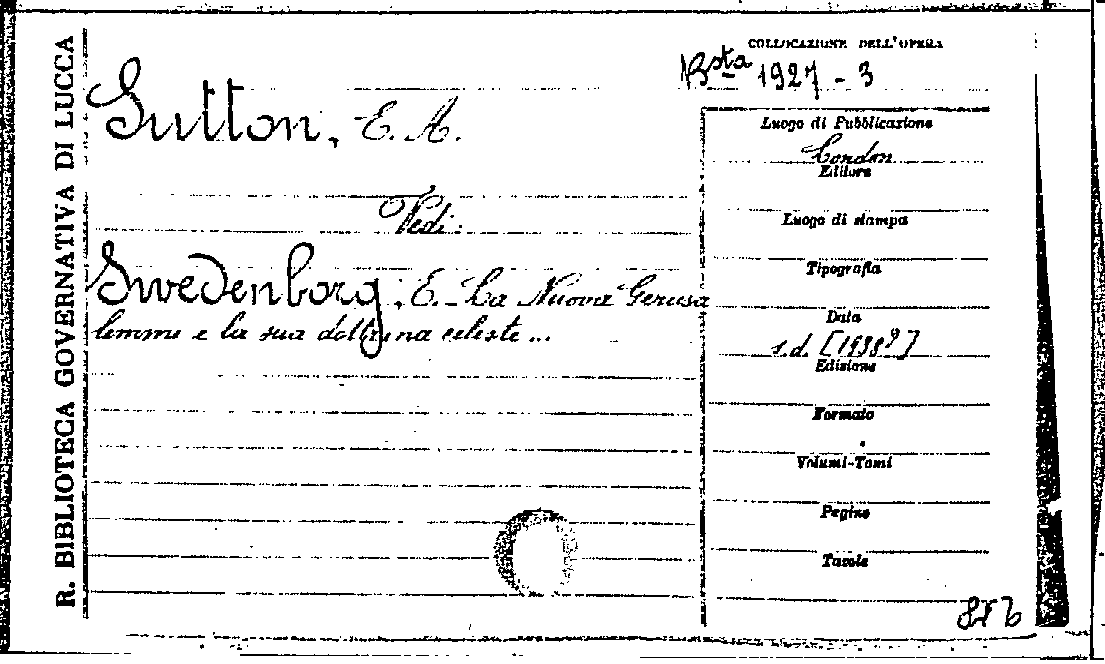 R. BIBLIOTECA GOVERNATIVA DI LUCCA
COLLOCAZIONE DELL'OPERA
Bsta 1927 - 3
Sutton, E. A.
Vedi:
Swedenborg, E. - La Nuova Gerusa
lemme e la sua dottrina celeste ...
Luogo di Pubblicazione
London
Editore
Luogo di stampa
Tipografia
Data
s.d. [1938?]
Edizione
Formato
Volumi-Tomi
Pagine
Tavole